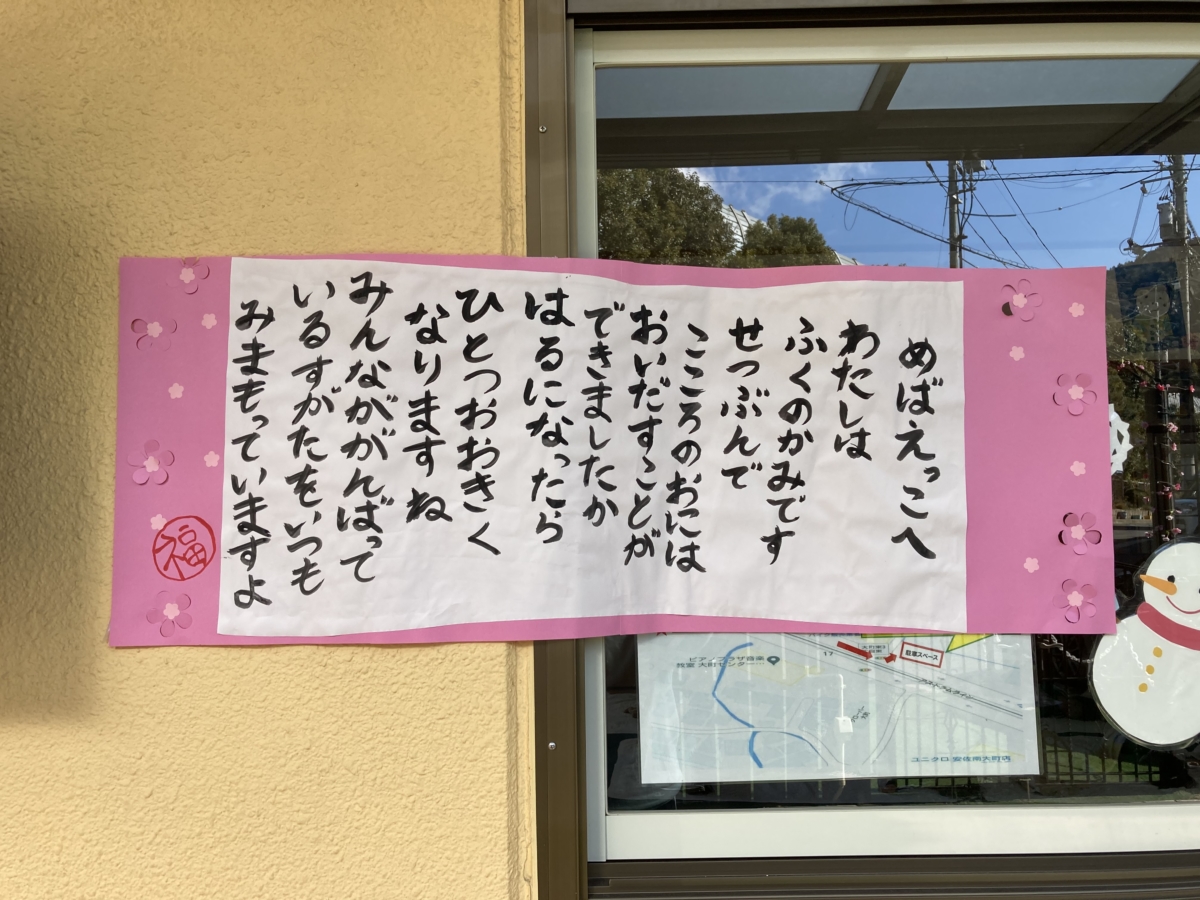 めばえっこへ
わたしは
ふくのかみです
せつぶんで
こころのおには
おいだすことが
できましたか
はるになったら
ひとつおおきく
なりますね
みんながんばって
いるすがたをいつも
みまもっていますよ
福
ピアノプラザ音楽
教室 大町センター…
17
駐車スペース
アストラムライン
ユニクロ 安佐南大町店